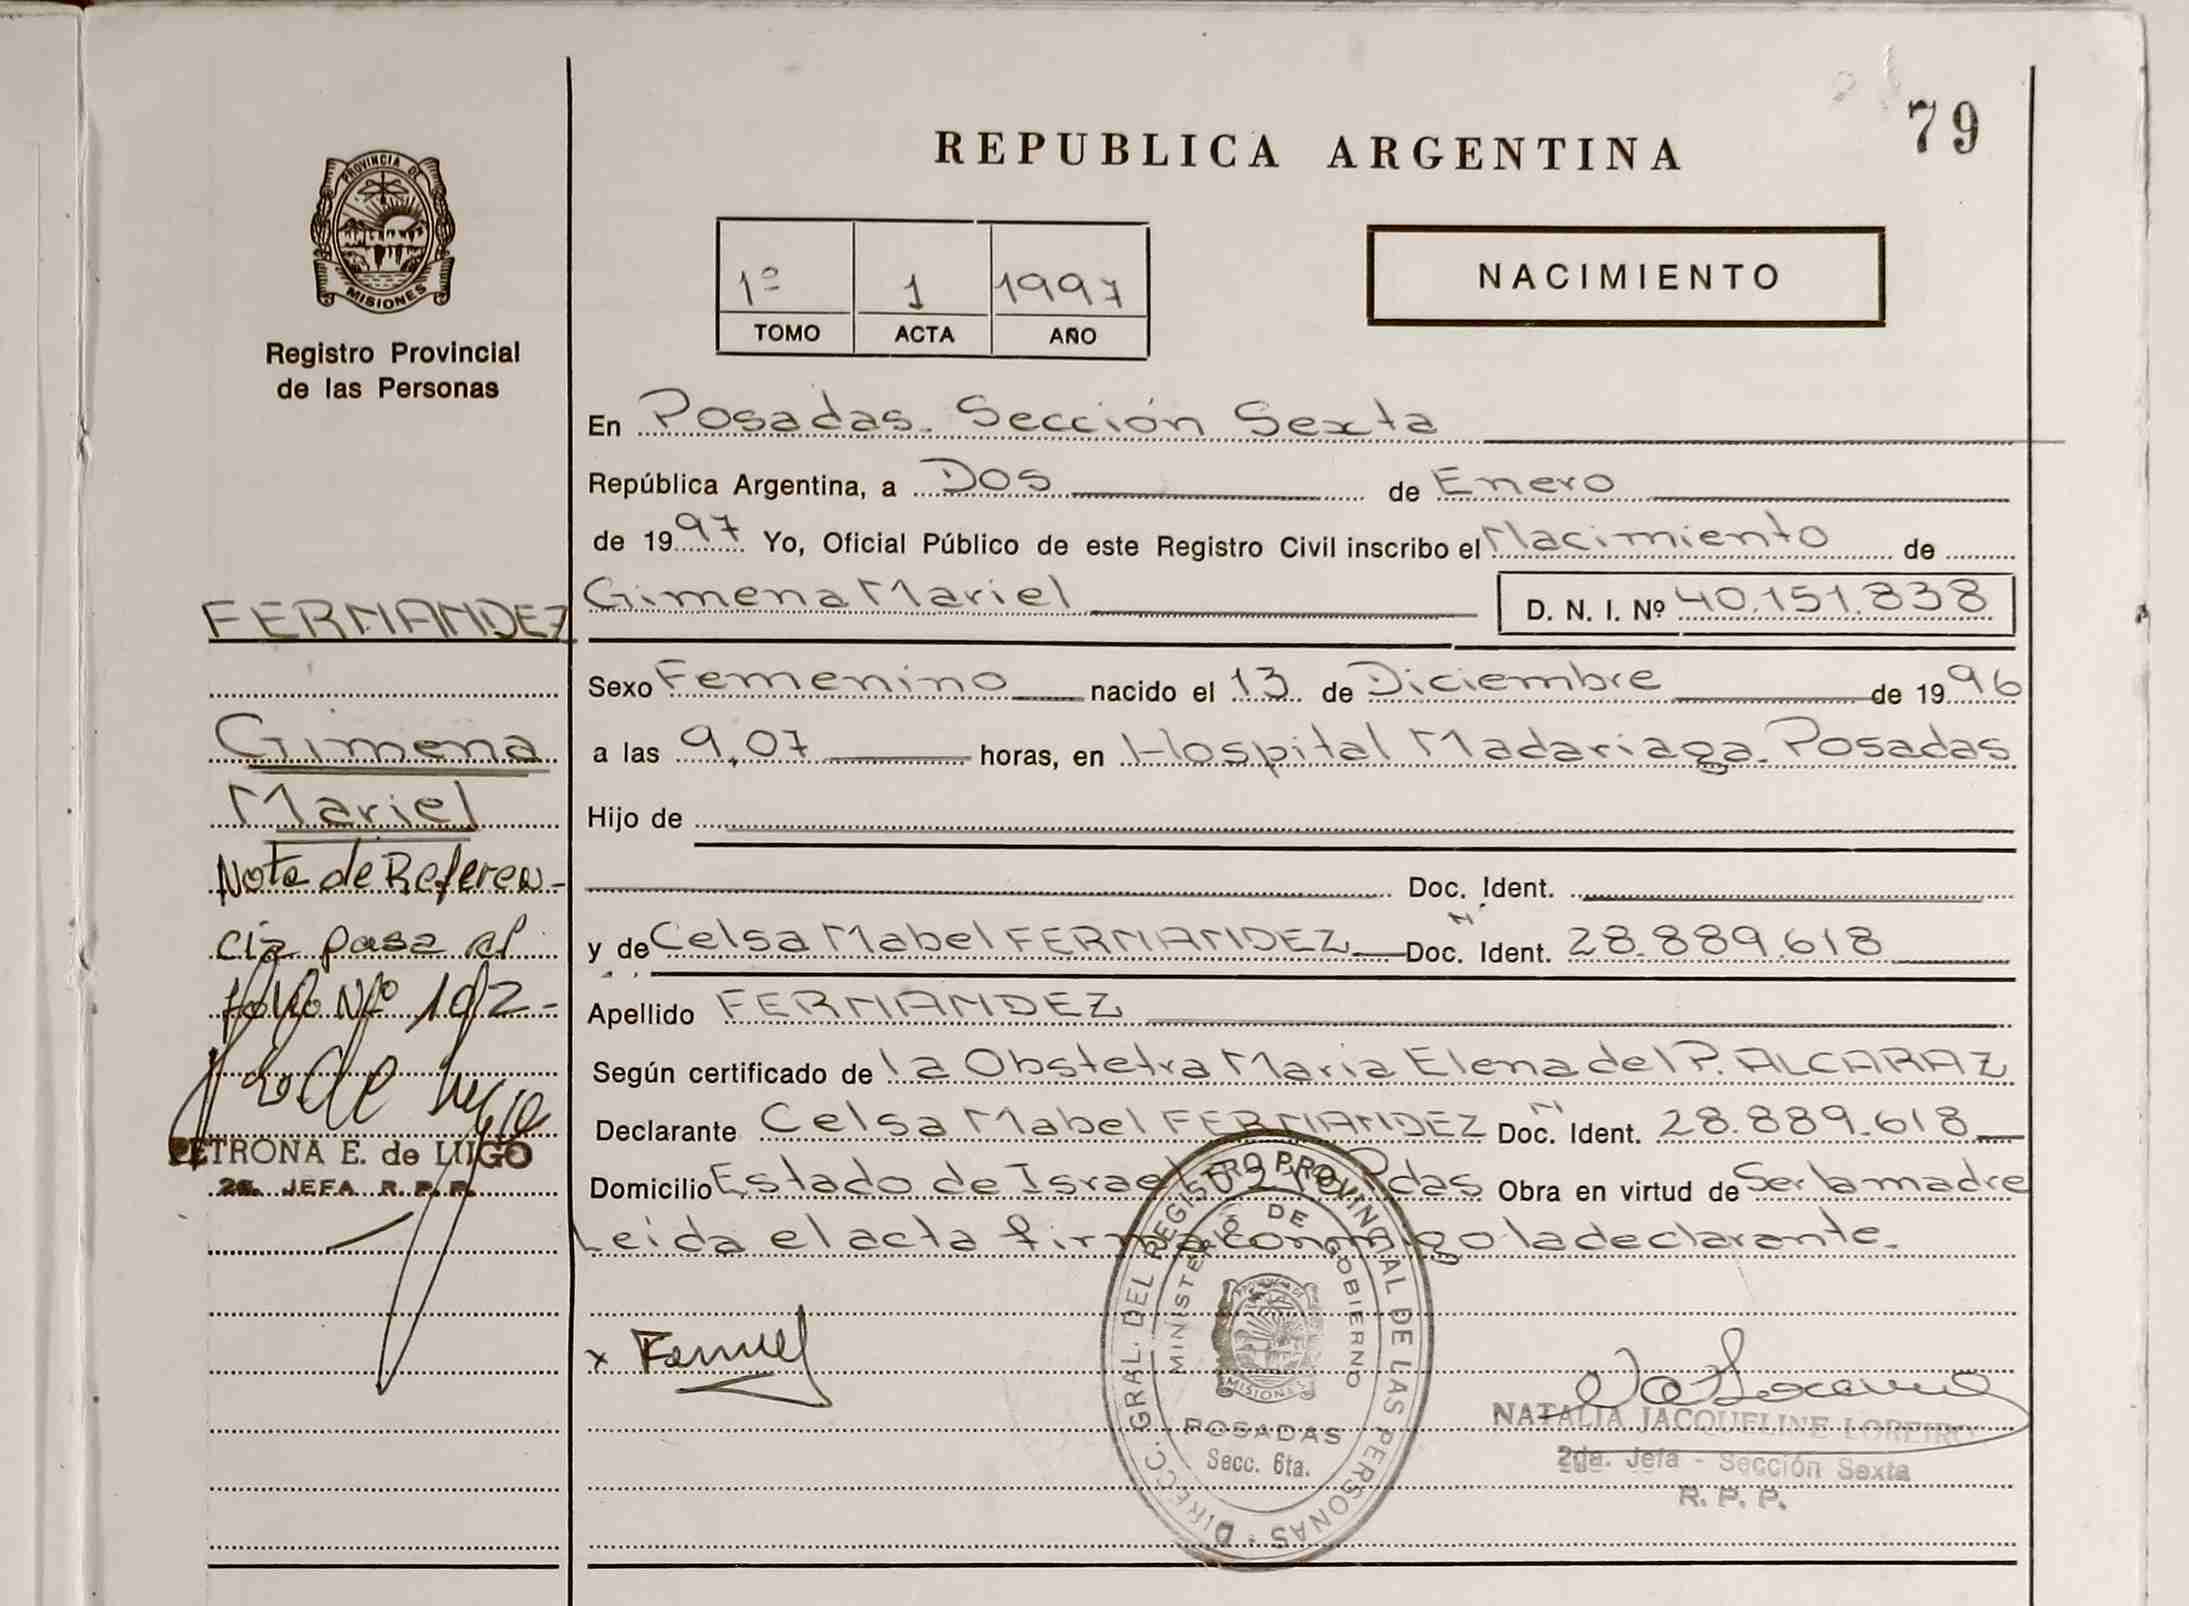 79
REPUBLICA ARGENTINA
PROVINCIA DE
MISIONES
Registro Provincial
de las Personas
1º 1 1997
TOMO ACTA AÑO
NACIMIENTO
En Posadas. Sección Sexta
República Argentina, a Dos de Enero
de 1997 Yo, Oficial Público de este Registro Civil inscribo el Nacimiento de
Gimena Mariel D. N. I. Nº 40.151.838
Sexo Femenino nacido el 13 de Diciembre de 1996
a las 9,07 horas, en Hospital Madariaga. Posadas
Hijo de
Doc. Ident.
y de Celsa Mabel FERNANDEZ Doc. N Ident. 28.889.618
Apellido FERNANDEZ
Según certificado de la Obstetra Maria Elena del P. ALCARAZ
Declarante Celsa Mabel FERNANDEZ Doc. N Ident. 28.889.618
Domicilio Estado de Israel Pdas Obra en virtud de Ser la madre
Leida el acta firma conmigo la declarante.
FERNANDEZ
Gimena
Mariel
Nota de Referen-
cia pasa al
folio Nº 192-
PETRONA E. de LUGO
2a. JEFA R. P. P.
DIRECC. GRAL. DEL REGISTRO PROVINCIAL DE LAS PERSONAS
MINISTERIO DE GOBIERNO
MISIONES
POSADAS
Secc. 6ta.
NATALIA JACQUELINE LOREIRO
2da. Jefa - Sección Sexta
R. P. P.